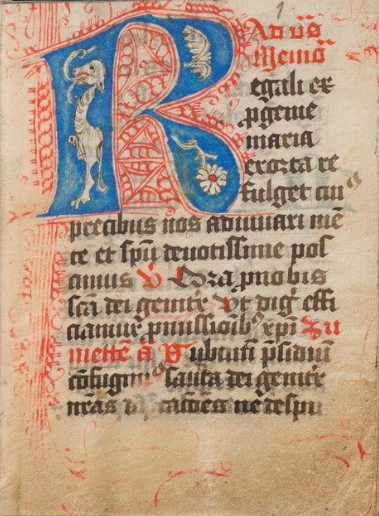 1.
Ad vs̄
Memo᷑
Regali ex
ꝓgenie
maria
exorta re
fulget cuiꝰ
precibus nos adiuuari mē
te et spū deuotissime pos
cimus V Ora ꝓnobis
scā dei genitͥx Vt digͥ effi
ciamur ꝓmissioībꝫ xp̄i
mettē añ Sub tuū p̄sidiū
cōfugimꝰ sancta dei genitͥx
nr̄as ne despi